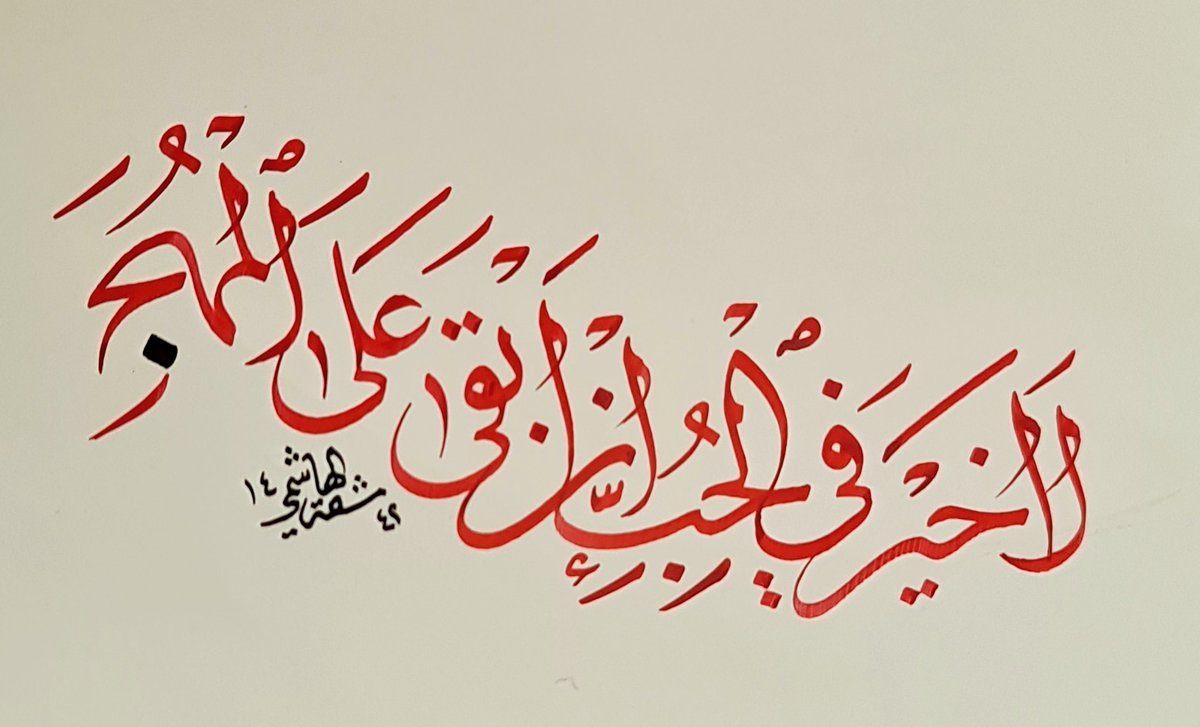 لَا خَيْرَ فِي الْحُبِّ إِنْ أَبْقَى عَلَى الْمُهَجِ
الهاشمي
١٤٤٢